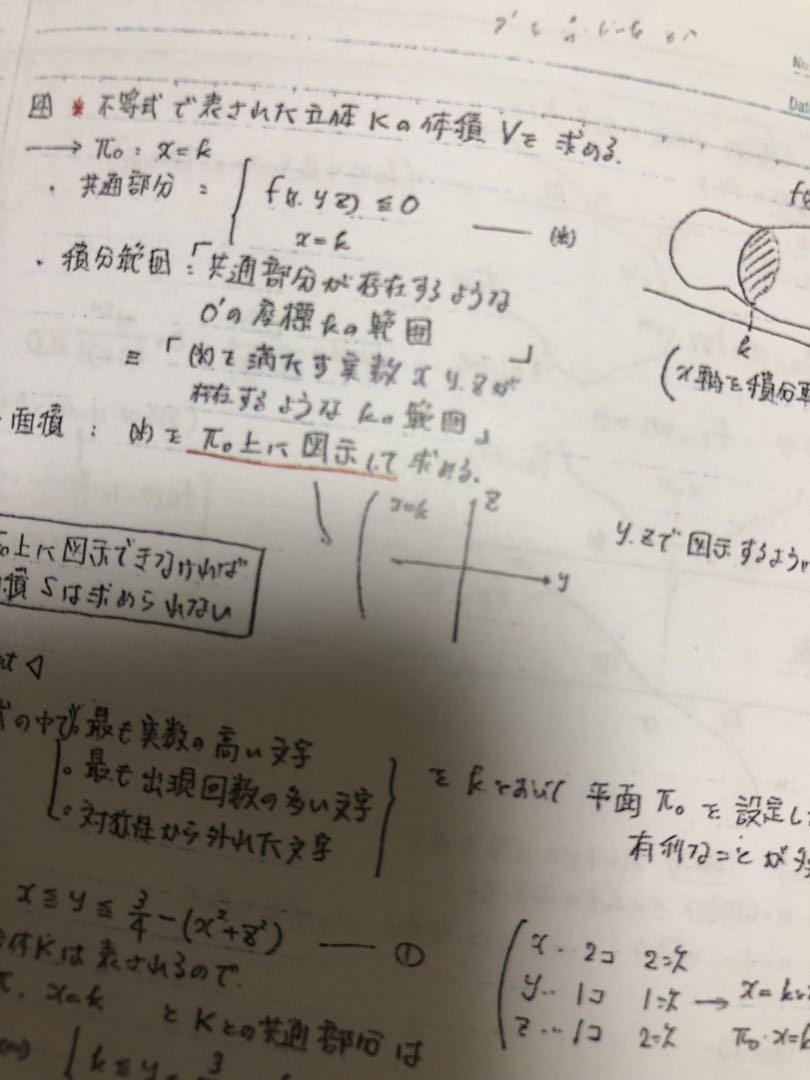 No.
不等式で表された立体Kの体積Vを求める。
→ π₀: x=k
・共通部分: { f(x.y z) ≦ 0
x=k —— (*)
・積分範囲:「共通部分が存在するような
O'の座標kの範囲」
≡「(*)を満たす実数x y.zが
存在するようなkの範囲」
k
(x軸を積分
・面積: (*)をπ₀上に図示して求める。
x=k
z
y
y.zで図示するように
上に図示できなければ
積Sは求められない
の中で。最も実数の高い文字
。最も出現回数の多い文字
。対称性から外れた文字
をkとおいて平面π₀を設定し
有利なことが多
x ≦ y ≦ 3/4 −(x²+z²) —— ①
体Kは表されるので
x=k とKとの共通部分は
k ≦ y ≦ 3
x‥2コ 2=次
y‥1コ 1=次 → x=k
z‥1コ 2=次 π₀.x=k